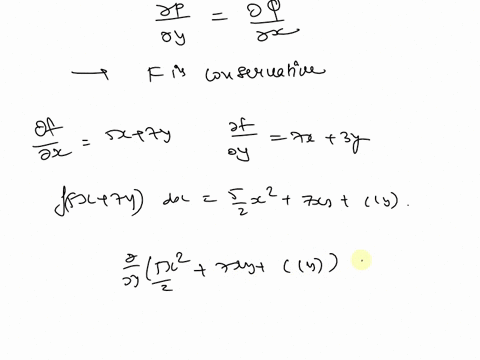 ∂P/∂y = ∂Q/∂x
→ F is conservative
∂f/∂x = 5x+7y   ∂f/∂y = 7x + 3y
∫(5x+7y) dx = 5/2 x² + 7xy + C(y).
∂/∂y (5x²/2 + 7xy + C(y))